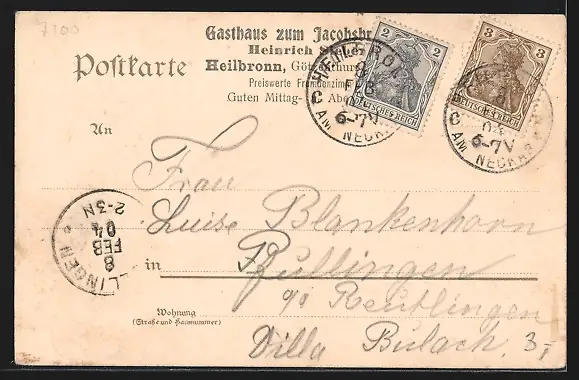 7100
Gasthaus zum Jacobsbr
Heinrich
Heilbronn,
Preiswerte Fremdenzim
Guten Mittag-
Postkarte
2 2
DEUTSCHES REICH
3 3
DEUTSCHES REICH
HEILBRONN
8
FEB
C
6-7V
AM NECKAR
04
6-7V
C
AM NECKAR
An
Frau
Luise Blankenhorn
in Pfullingen
Reutlingen
Wohnung
(Straße und Hausnummer)
Villa Bulach.
3,-
LLINGEN
8
FEB
04
2-3N